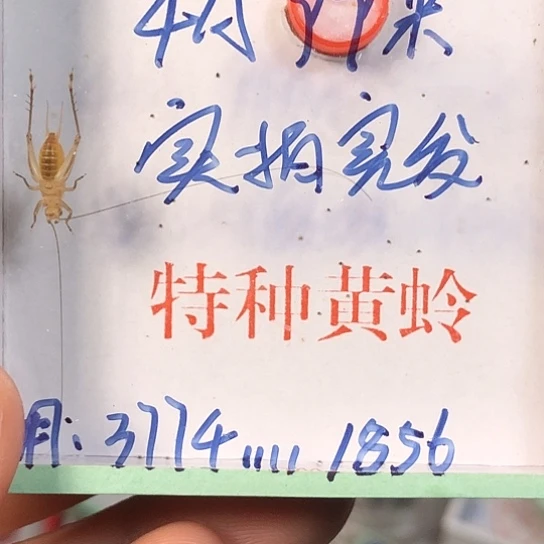 实拍实发
特种黄蛉
月: 3774 ,,,,, 1856